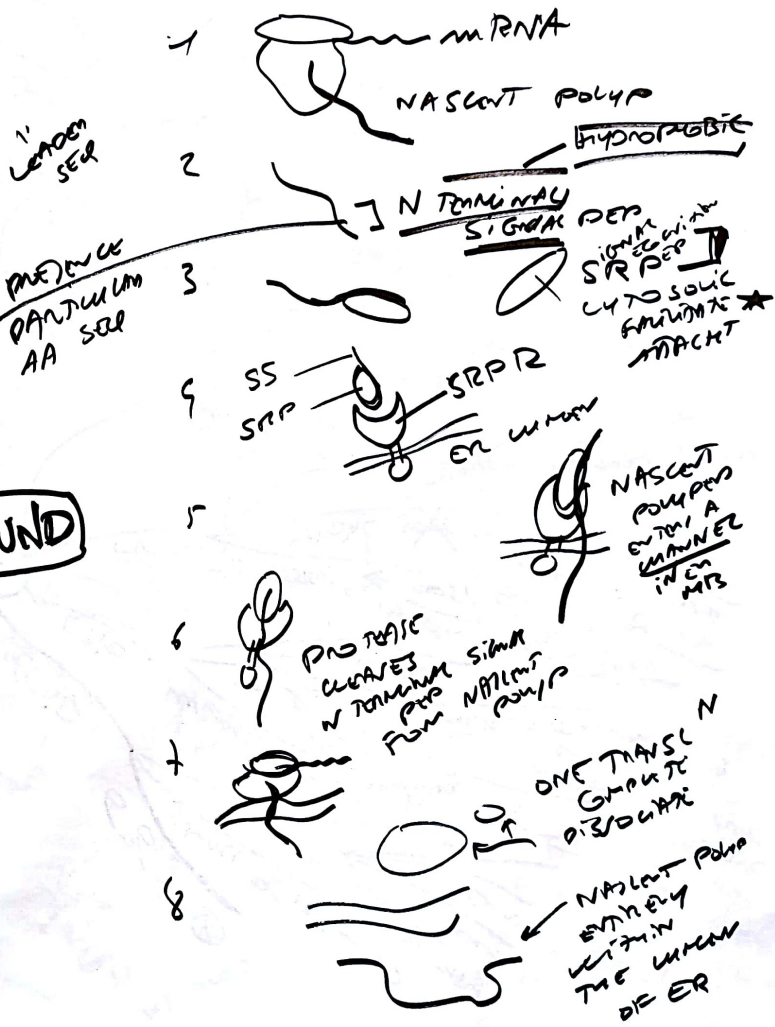 1
mRNA
NASCENT POLYP
1'
LEADER
SEQ
2
HYDROPHOBIC
N TERMINAL
SIGNAL PEP
PRESENCE
PARTICULAR
AA SEQ
3
SIGNAL RECOGNITION
SR PEP
CYTOSOLIC
FACILITATE
ATTACHT
SS
SRP
SRP R
ER LUMEN
UND
5
NASCENT
POLYPEP
ENTERS A
CHANNEL
IN ER
MB
6
PROTEASE
CLEAVES
N TERMINAL SIGNAL
PEP
FROM NASCENT
POLYP
7
ONE TRANSL N
COMPLETE
DISSOCIATE
8
NASCENT POLYP
ENTIRELY
WITHIN
THE LUMEN
OF ER